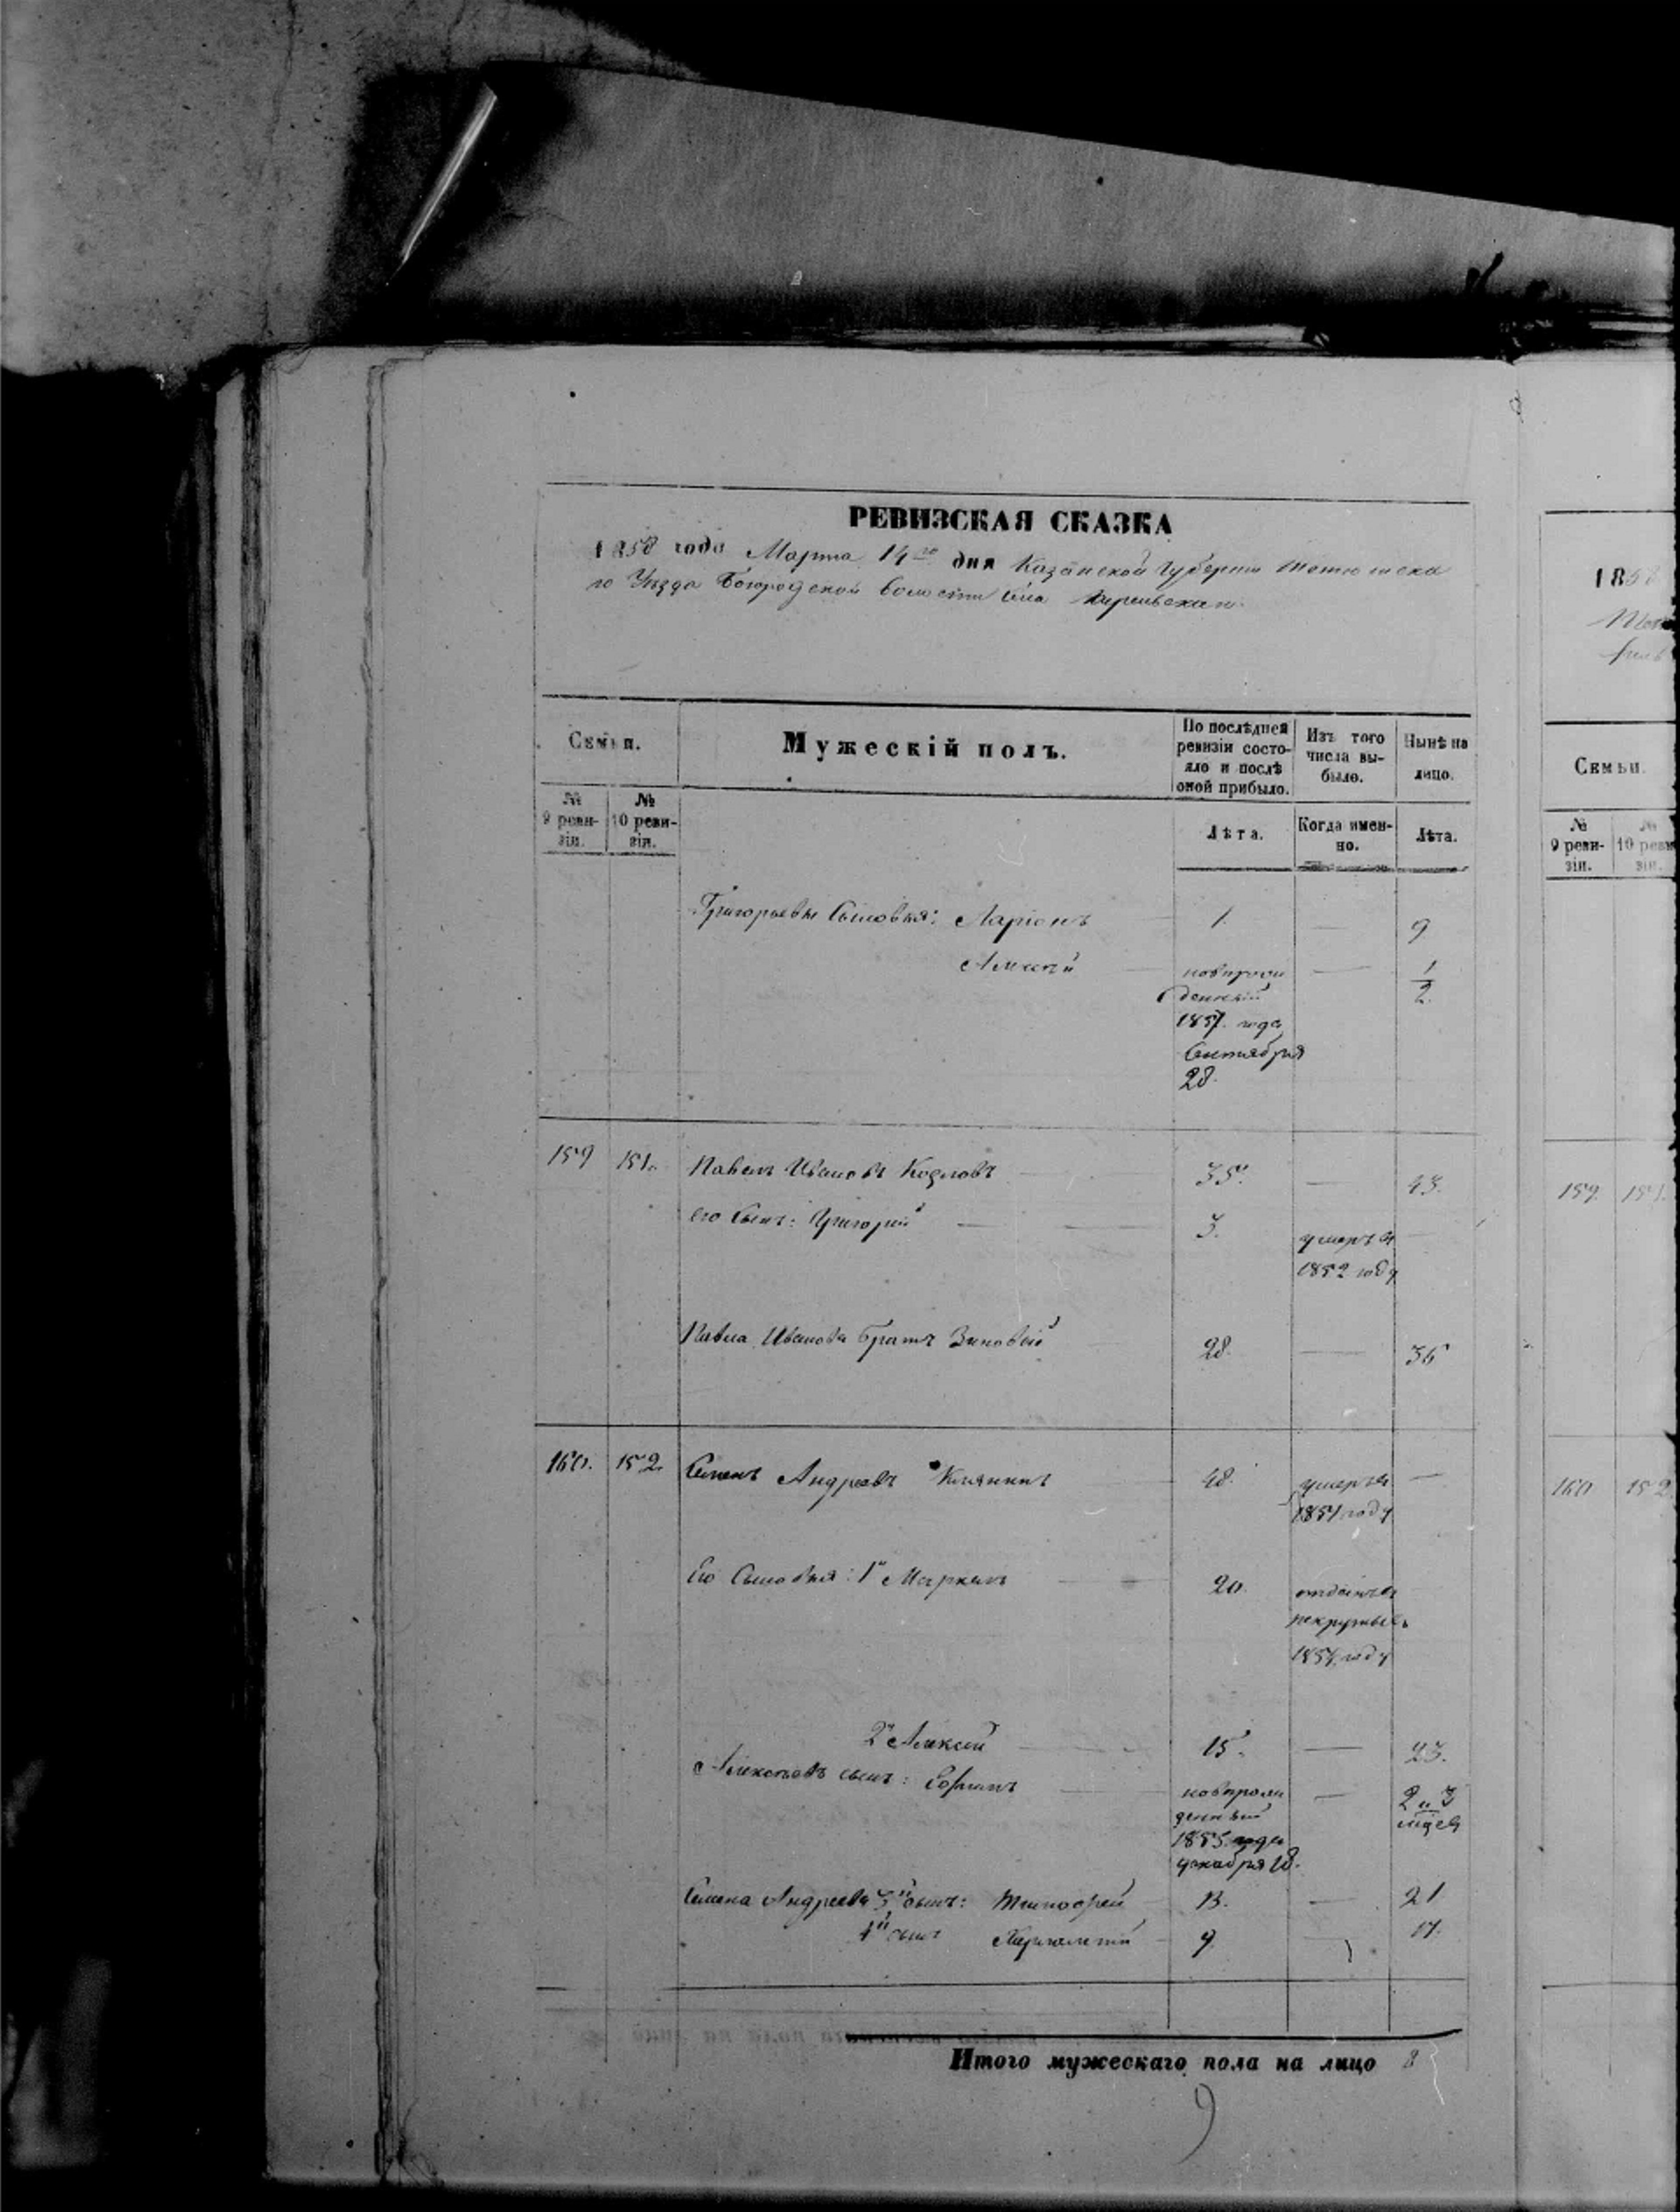 РЕВИЗСКАЯ СКАЗКА
1858 года Марта 14го дня Казанской Губернии Тетюшска
го Уезда Богородской волости села
Семьи.
Мужескій полъ.
По послѣдней ревизіи состояло и послѣ оной прибыло.
Изъ того числа выбыло.
Нынѣ на лицо.
№ 9 ревизіи.
№ 10 ревизіи.
Лѣта.
Когда именно.
Лѣта.
Григорьевы Сыновья: Ларіонъ 1. — 9
Алексѣй новорож
денный
1857. года
Сентября
28.
— 1/2
159 151. Павелъ Ивановъ Козловъ 35. — 43.
его сынъ: Григорій 3. умеръ въ
1852 году
—
Павла Иванова братъ Зиновій 28. — 36
160. 152. Семенъ Андреевъ 48. умеръ въ
1854 году
—
Его Сыновья: 1й Маркелъ 20. отданъ въ
рекруты въ
1854 году
2й Алексѣй 15. — 23.
Алексѣевъ сынъ: новорож
денный
1855 года
декабря 18.
— 2 и 3
мцев
Семена Андреева 3й сынъ: Тимофей 13. — 21
4й сынъ 9 — 17.
Итого мужескаго пола на лицо 8
1858
Семьи.
№ 9 ревизіи.
№ 10 ревизіи.
159. 151.
160 152.